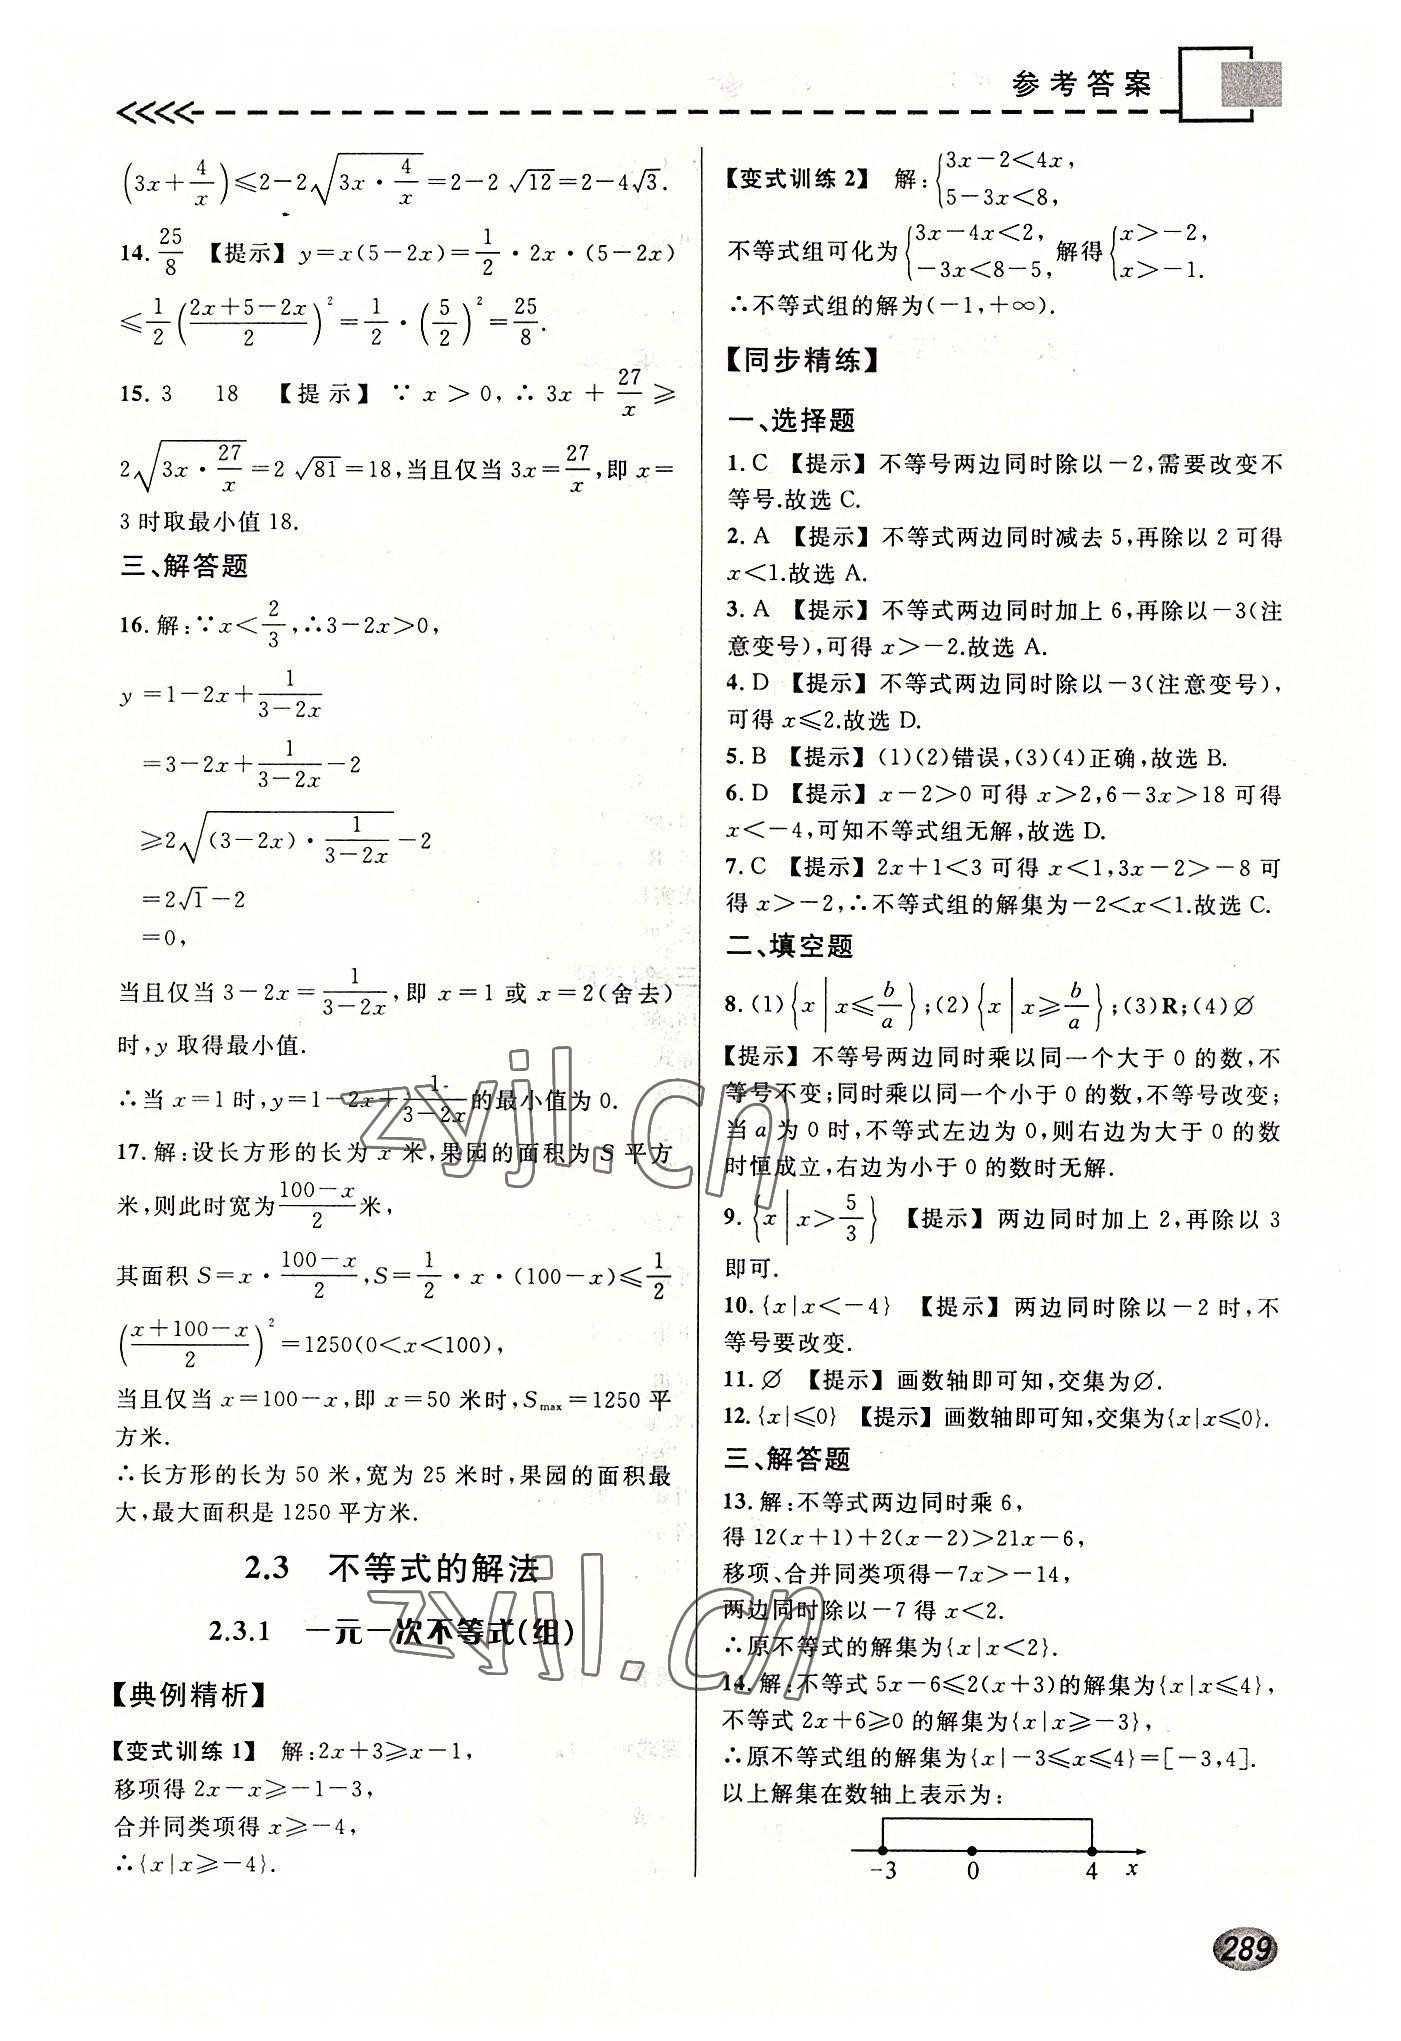 参考答案
(3x+4/x)≤2-2√(3x·4/x)=2-2√12=2-4√3.
14. 25/8 【提示】y=x(5-2x)=1/2·2x·(5-2x)
≤1/2((2x+5-2x)/2)²=1/2·(5/2)²=25/8.
15. 3 18 【提示】∵x>0,∴3x+27/x≥
2√(3x·27/x)=2√81=18,当且仅当3x=27/x,即x=
3时取最小值18.
三、解答题
16. 解:∵x<2/3,∴3-2x>0,
y=1-2x+1/(3-2x)
=3-2x+1/(3-2x)-2
≥2√((3-2x)·1/(3-2x))-2
=2√1-2
=0,
当且仅当3-2x=1/(3-2x),即x=1或x=2(舍去)
时,y取得最小值.
∴当x=1时,y=1-2x+1/(3-2x)的最小值为0.
17. 解:设长方形的长为x米,果园的面积为S平方
米,则此时宽为(100-x)/2米,
其面积S=x·(100-x)/2,S=1/2·x·(100-x)≤1/2
((x+100-x)/2)²=1250(0<x<100),
当且仅当x=100-x,即x=50米时,Smax=1250平
方米.
∴长方形的长为50米,宽为25米时,果园的面积最
大,最大面积是1250平方米.
2.3 不等式的解法
2.3.1 一元一次不等式(组)
【典例精析】
【变式训练1】 解:2x+3≥x-1,
移项得2x-x≥-1-3,
合并同类项得x≥-4,
∴{x|x≥-4}.
【变式训练2】 解:{3x-2<4x,
5-3x<8,
不等式组可化为{3x-4x<2, -3x<8-5,解得{x>-2, x>-1.
∴不等式组的解为(-1,+∞).
【同步精练】
一、选择题
1. C 【提示】不等号两边同时除以-2,需要改变不
等号.故选C.
2. A 【提示】不等式两边同时减去5,再除以2可得
x<1.故选A.
3. A 【提示】不等式两边同时加上6,再除以-3(注
意变号),可得x>-2.故选A.
4. D 【提示】不等式两边同时除以-3(注意变号),
可得x≤2.故选D.
5. B 【提示】(1)(2)错误,(3)(4)正确,故选B.
6. D 【提示】x-2>0可得x>2,6-3x>18可得
x<-4,可知不等式组无解,故选D.
7. C 【提示】2x+1<3可得x<1,3x-2>-8可
得x>-2,∴不等式组的解集为-2<x<1.故选C.
二、填空题
8. (1){x|x≤b/a};(2){x|x≥b/a};(3)R;(4)∅
【提示】不等号两边同时乘以同一个大于0的数,不
等号不变;同时乘以同一个小于0的数,不等号改变;
当a为0时,不等式左边为0,则右边为大于0的数
时恒成立,右边为小于0的数时无解.
9. {x|x>5/3} 【提示】两边同时加上2,再除以3
即可.
10. {x|x<-4} 【提示】两边同时除以-2时,不
等号要改变.
11. ∅ 【提示】画数轴即可知,交集为∅.
12. {x|≤0} 【提示】画数轴即可知,交集为{x|x≤0}.
三、解答题
13. 解:不等式两边同时乘6,
得12(x+1)+2(x-2)>21x-6,
移项、合并同类项得-7x>-14,
两边同时除以-7得x<2.
∴原不等式的解集为{x|x<2}.
14. 解:不等式5x-6≤2(x+3)的解集为{x|x≤4},
不等式2x+6≥0的解集为{x|x≥-3},
∴原不等式组的解集为{x|-3≤x≤4}=[-3,4].
以上解集在数轴上表示为:
-3 0 4 x
289
zyjl.cn
zyjl.cn